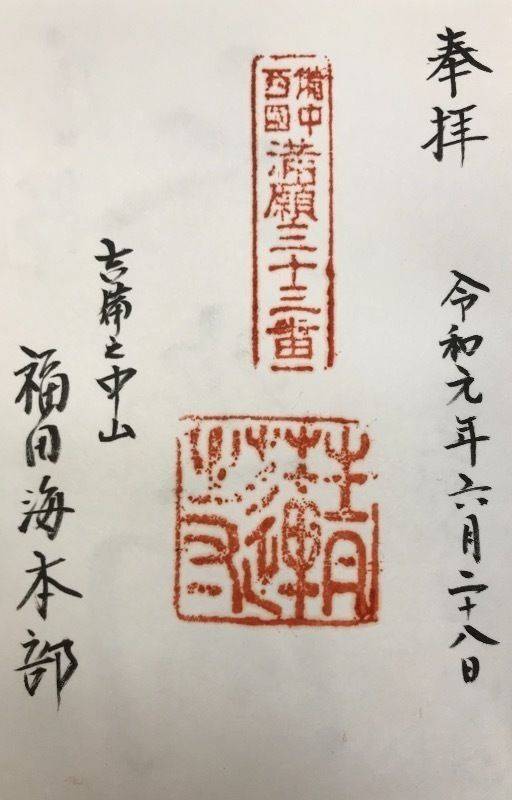 奉拝
令和元年六月二十八日
備中
西國
満願三十三番
吉備之中山
福田海本部